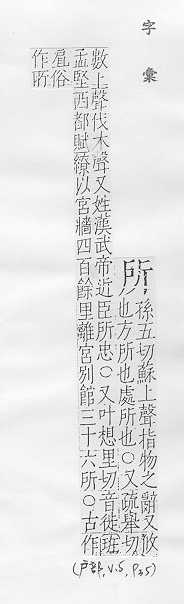 字彙
所
孫五切蘇上聲指物之辭又攸
也方所也處所也○又疏舉切
數上聲伐木聲又姓漢武帝近臣所忠○又叶想里切音徙班
孟堅西都賦繚以宮牆四百餘里離宮別館三十六所○古作
俗
作
(戶部, V.5, P35)